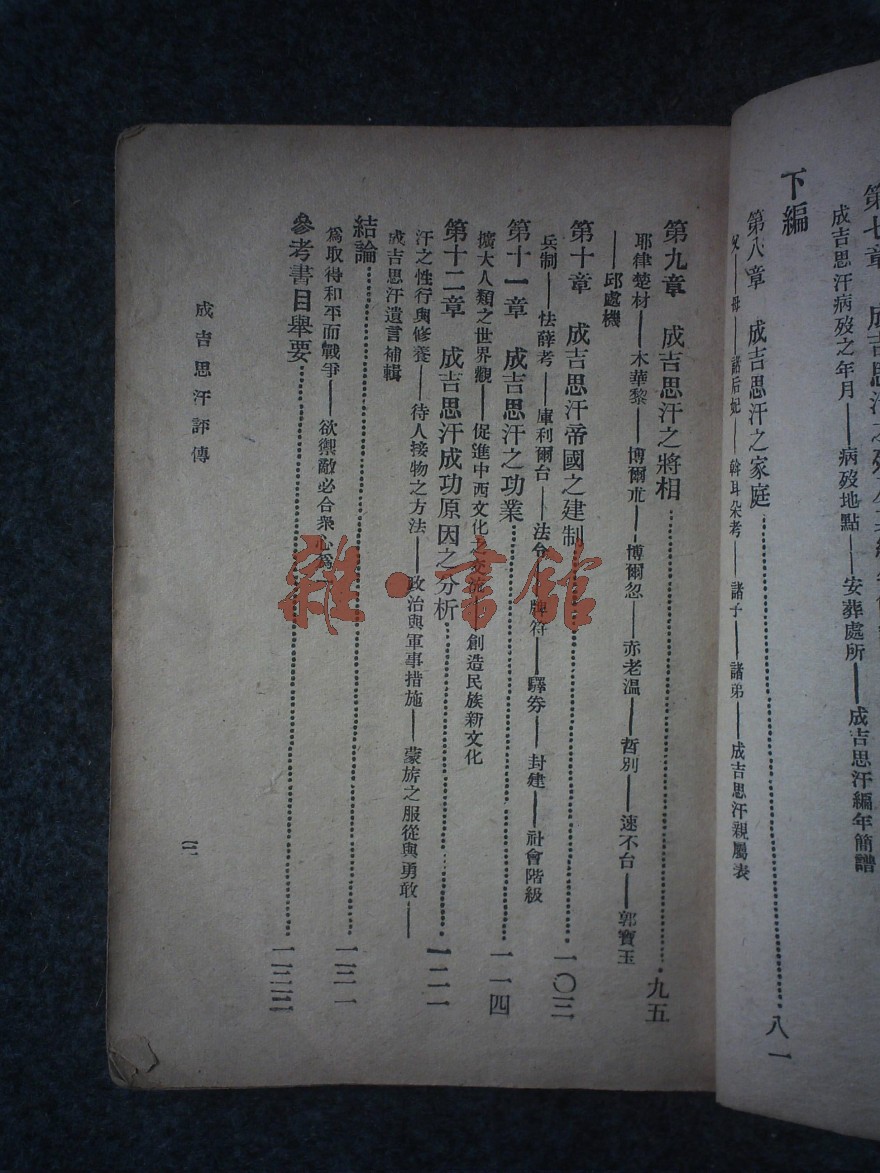 成吉思汗病歿之年月——病歿地點——安葬處所——成吉思汗編年簡譜
下編
第八章　成吉思汗之家庭……八一
諸后妃——斡耳朵考——諸子——諸弟——成吉思汗親屬表
第九章　成吉思汗之將相……九五
耶律楚材——木華黎——博爾朮——博爾忽——赤老溫——哲別——速不台——郭寶玉
——邱處機
第十章　成吉思汗帝國之建制……一〇三
兵制——怯薛考——庫利爾台——法令——牌符——驛券——封建——社會階級
第十一章　成吉思汗之功業……一一四
擴大人類之世界觀——促進中西文化之交流——創造民族新文化
第十二章　成吉思汗成功原因之分析……一二一
汗之性行與修養——待人接物之方法——政治與軍事措施——蒙族之服從與勇敢——
成吉思汗遺言補輯
結論……一三一
爲取得和平而戰爭——欲禦敵必合衆心爲
參考書目舉要……一三三
成吉思汗評傳
雜·書館